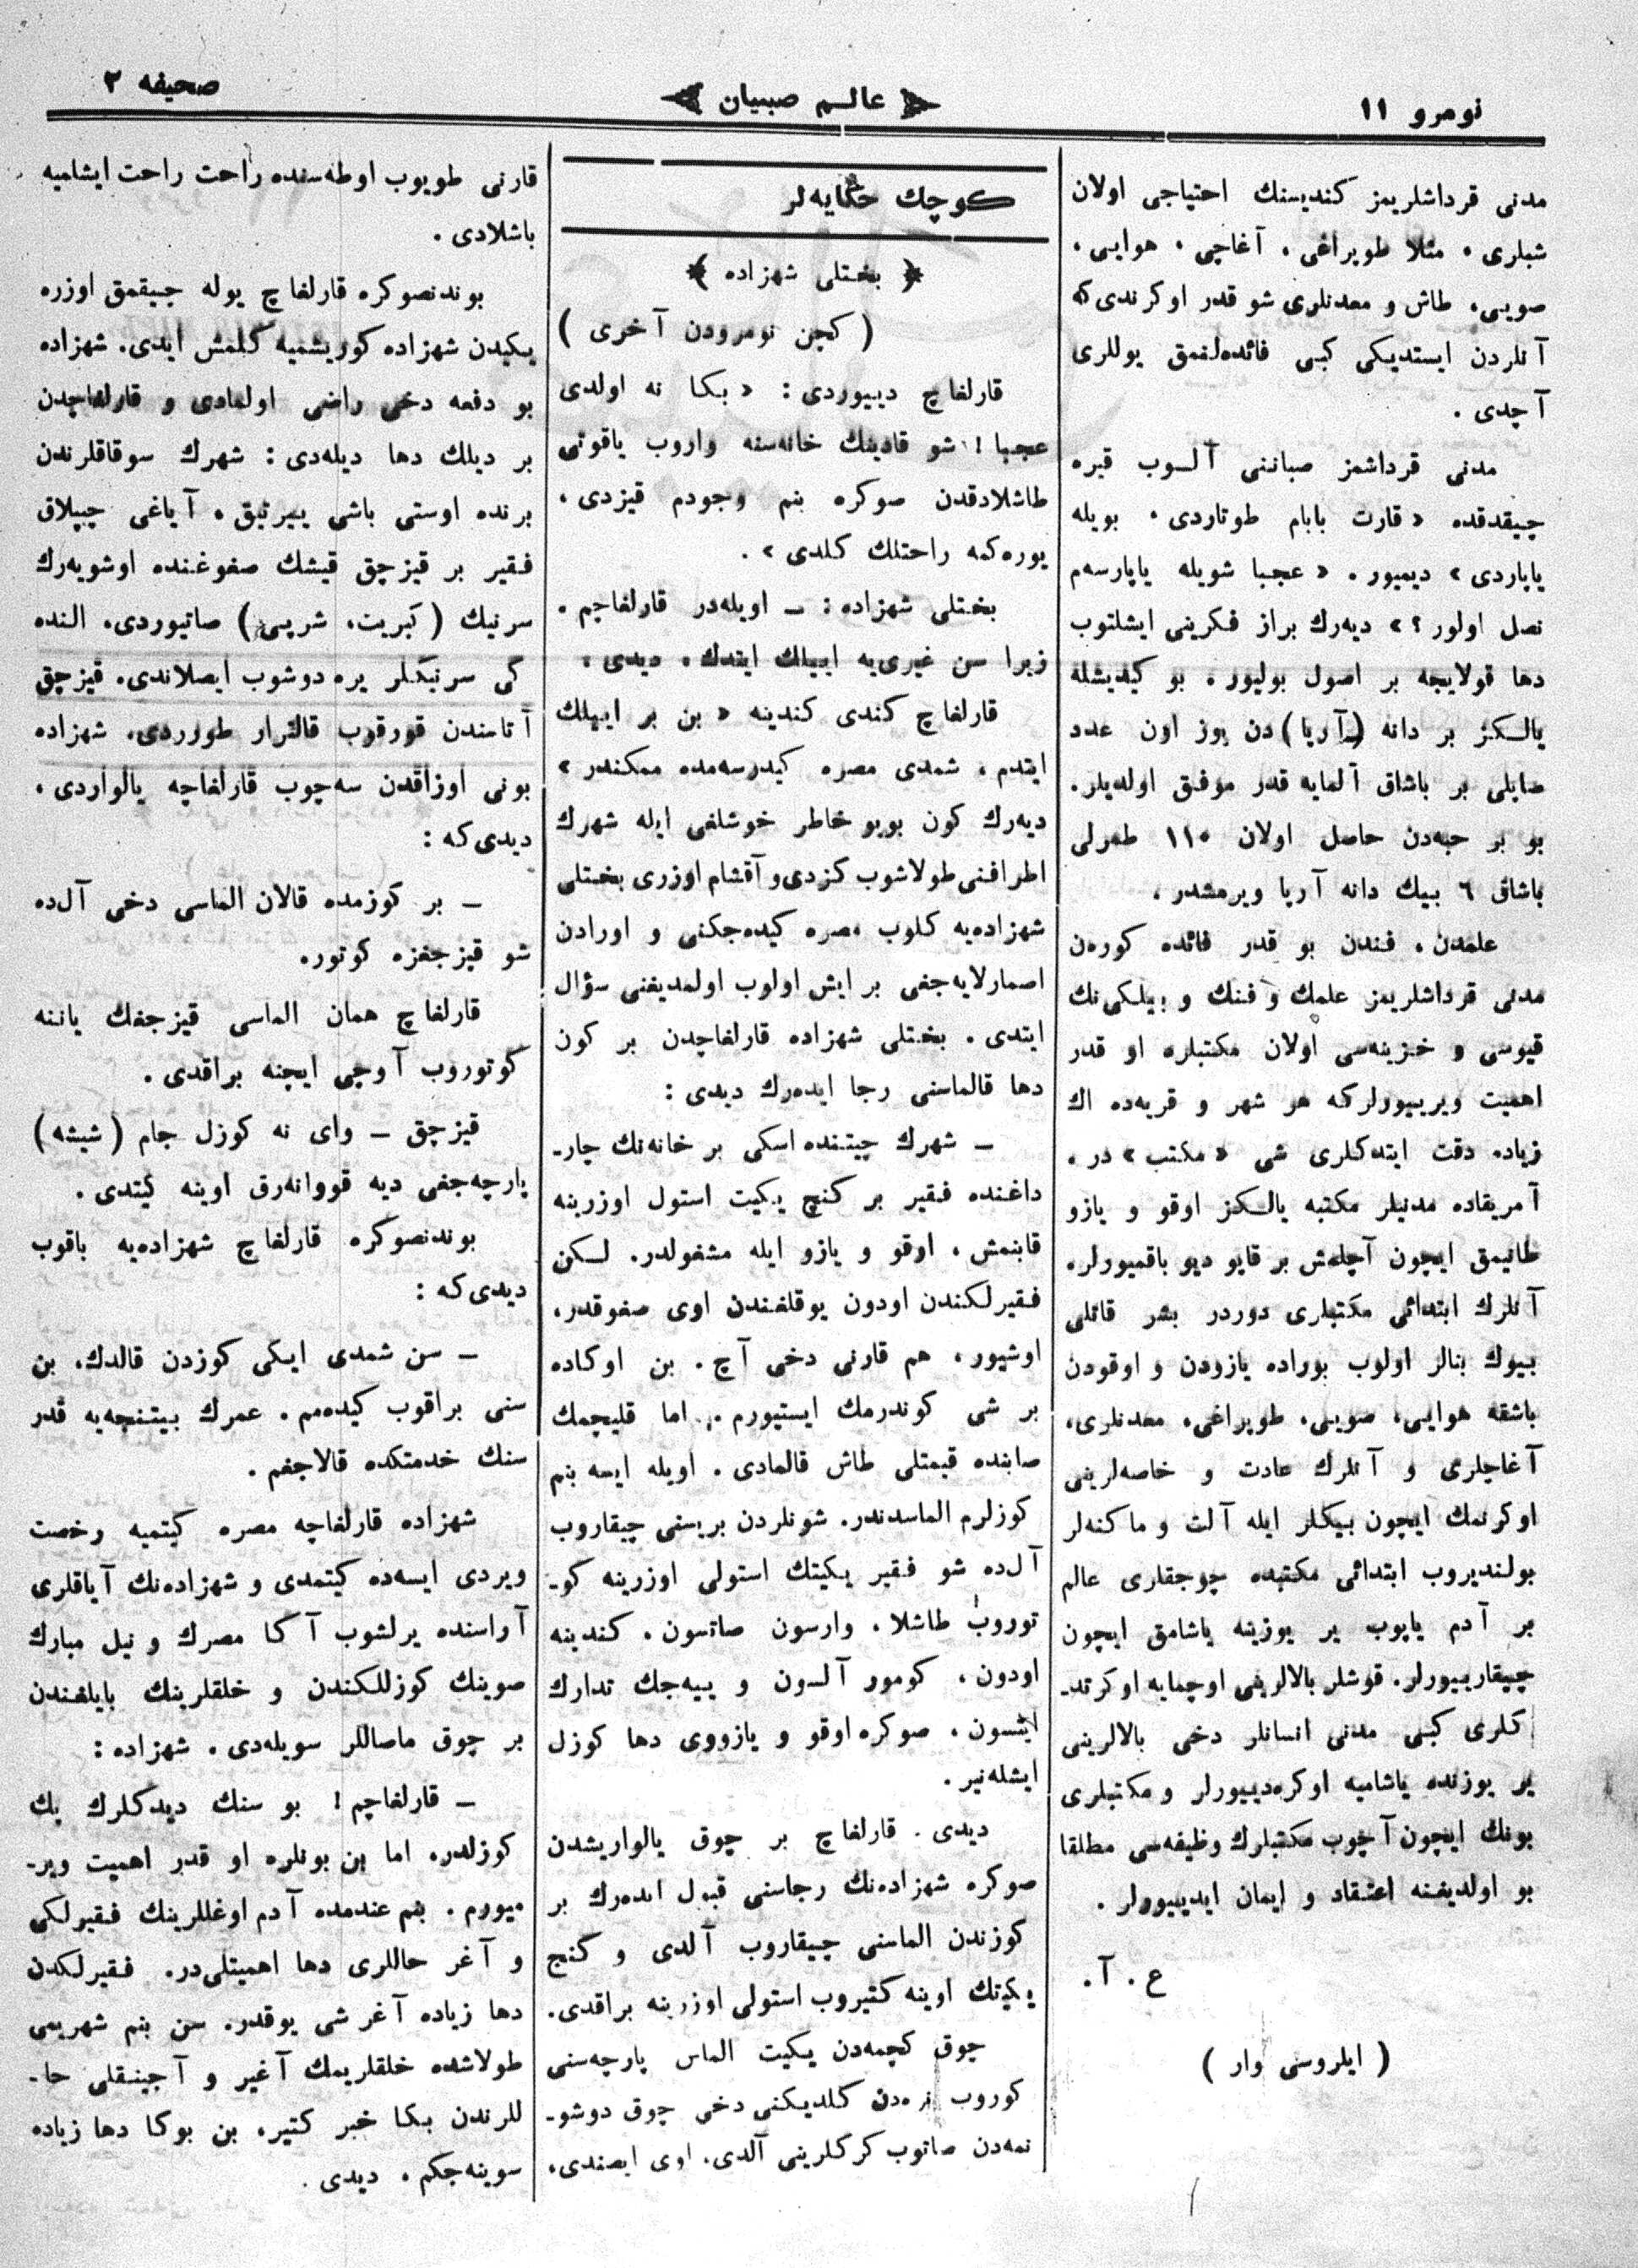 نومرو ١١
عالـم صبيان
صحيفه ٢
مدنى قرداشلريمز كنديسنك احتياجى اولان
شيلرى، مثلا طوپراغى، آغاچى، هوايى،
صويى، طاش و معدنلرى شو قدر اوكرندى كه
آنلردن ايستديكى كبى فائده‌لنمق يوللرى
آچدى.
مدنى قرداشمز صباننى آلـوب قيره
چيقدقده «قارت بابام طوتاردى، بويله
ياپاردى» ديميور. «عجبا شويله ياپارسه‌م
نصل اولور؟» ديه‌رك براز فكرينى ايشلتوب
دها قولايجه بر اصول بوليور. بو كيديشله
يالـكز بر دانه (آرپا) دن يوز اون عدد
صاپلى بر باشاق آلمايه قدر موفق اولديلر.
بو بر حبه‌دن حاصل اولان ١١٠ طمرلى
باشاق ٦ بيك دانه آرپا ويرمشدر.
علمدن، فندن بو قدر فائده كوره‌ن
مدنى قرداشلريمز علمك و فنك و بيلكى‌نك
قپوسى و خزينه‌سى اولان مكتبلره او قدر
اهميت ويرييورلركه هر شهر و قريه‌ده اك
زياده دقت ايتدكلرى شى «مكتب» در.
آمريقاده مدنيلر مكتبه يالـكز اوقو و يازو
طانيمق ايچون آچلمش بر قاپو ديو باقميورلر.
آنلرك ابتدائى مكتبلرى دوردر بشر قاتلى
بيوك بنالر اولوب بوراده يازودن و اوقودن
باشقه هوايى، صويى، طوپراغى، معدنلرى،
آغاچلرى و آنلرك عادت و خاصه‌لرينى
اوكرنمك ايچون بيكلر ايله آلت و ماكنه‌لر
بولنديروب ابتدائى مكتبده چوجقلرى عالم
بر آدم ياپوب ير يوزينه ياشامق ايچون
چيقارييورلر. قوشلر بالالرينى اوچمايه اوكرتد-
كلرى كبى مدنى انسانلر دخى بالالرينى
ير يوزنده ياشاميه اوكره‌دييورلر و مكتبلرى
بونك ايچون آچوب مكتبلرك وظيفه‌سى مطلقا
بو اولديغنه اعتقاد و ايمان ايدييورلر.
ع. آ.
( ايلروسى وار )
كوچك حكايه‌لر
بختلى شهزاده
( كچن نومرودن آخرى )
قارلغاچ دييوردى: «بكا نه اولدى
عجبا! شو قادينك خانه‌سنه واروب ياقوتى
طاشلادقدن صوكره بنم وجودم قيزدى،
يوره‌كمه راحتلك كلدى».
بختلى شهزاده: — اويله‌در قارلغاچم.
زيرا سن غيرى‌يه اييلك ايتدك، ديدى.
قارلغاچ كندى كندينه «بن بر اييلك
ايتدم، شمدى مصره كيدرسه‌مده ممكندر»
ديه‌رك كون بويو خاطر خوشلغى ايله شهرك
اطرافنى طولاشوب كزدى و آقشام اوزرى بختلى
شهزاده‌يه كلوب مصره كيده‌جكنى و اورادن
اصمارلايه‌جغى بر ايش اولوب اولمديغنى سؤال
ايتدى. بختلى شهزاده قارلغاچدن بر كون
دها قالماسنى رجا ايده‌رك ديدى:
— شهرك چيتنده اسكى بر خانه‌نك چار-
داغنده فقير بر كنچ يكيت استول اوزرينه
قابنمش، اوقو و يازو ايله مشغولدر. لـكن
فقيرلكندن اودون يوقلغندن اوى صغوقدر،
اوشيور، هم قارنى دخى آچ. بن اوكاده
بر شى كوندرمك ايستيورم. اما قليچمك
صاپنده قيمتلى طاش قالمادى. اويله ايسه بنم
كوزلرم الماسدندر. شونلردن بريسنى چيقاروب
آل‌ده شو فقير يكيتك استولى اوزرينه كو-
توروب طاشلا. وارسون صاتسون. كندينه
اودون، كومور آلسون و ييه‌جك تدارك
ايتسون. صوكره اوقو و يازووى دها كوزل
ايشله‌نير.
ديدى. قارلغاچ بر چوق يالواريشدن
صوكره شهزاده‌نك رجاسنى قبول ايده‌رك بر
كوزندن الماسنى چيقاروب آلدى و كنچ
يكيتك اوينه كتيروب استولى اوزرينه براقدى.
چوق كچمه‌دن يكيت الماس پارچه‌سنى
كوروب نره‌دن كلديكنى دخى چوق دوشو-
نمه‌دن صاتوب كركلرينى آلدى. اوى ايصندى،
قارنى طويوب اوطه‌سنده راحت راحت ايشاميه
باشلادى.
بوندنصوكره قارلغاچ يوله چيقمق اوزره
يكيدن شهزاده كوريشميه كلمش ايدى. شهزاده
بو دفعه دخى راضى اولمادى و قارلغاچدن
بر ديلك دها ديله‌دى: شهرك سوقاقلرندن
برنده اوستى باشى ييرتيق، آياغى چيپلاق
فقير بر قيزجق قيشك صغوغنده اوشويه‌رك
سرنيك (كبريت، شرپى) صاتيوردى. النده
كى سرنيكلر يره دوشوب ايصلاندى. قيزجق
آتاسندن قورقوب قالترار طورردى. شهزاده
بونى اوزاقدن سه‌چوب قارلغاچه يالواردى.
ديدى كه:
— بر كوزمده قالان الماسى دخى آل‌ده
شو قيزجغزه كوتور.
قارلغاچ همان الماسى قيزجغك ياننه
كوتوروب آوجى ايچنه براقدى.
قيزجق — واى نه كوزل جام (شيشه)
پارچه‌جغى ديه قووانه‌رق اوينه كيتدى.
بوندنصوكره قارلغاچ شهزاده‌يه باقوب
ديدى كه:
— سن شمدى ايكى كوزدن قالدك، بن
سنى براقوب كيده‌مم. عمرك بيتنجه‌يه قدر
سنك خدمتكده قالاجغم.
شهزاده قارلغاچه مصره كيتميه رخصت
ويردى ايسه‌ده كيتمدى و شهزاده‌نك آياقلرى
آراسنده يرلشوب آكا مصرك و نيل مبارك
صوينك كوزللكندن و خلقلرينك بايلغندن
بر چوق ماصاللر سويله‌دى. شهزاده:
— قارلغاچم! بو سنك ديدكلرك پك
كوزلدر، اما بن بونلره او قدر اهميت وير-
ميورم. بنم عندمده آدم اوغللرينك فقيرلكى
و آغر حاللرى دها اهميتلى‌در. فقيرلكدن
دها زياده آغر شى يوقدر. سن بنم شهريمى
طولاشده خلقلريمك آغير و آجينقلى حا-
للرندن بكا خبر كتير، بن بوكا دها زياده
سوينه‌جكم، ديدى.